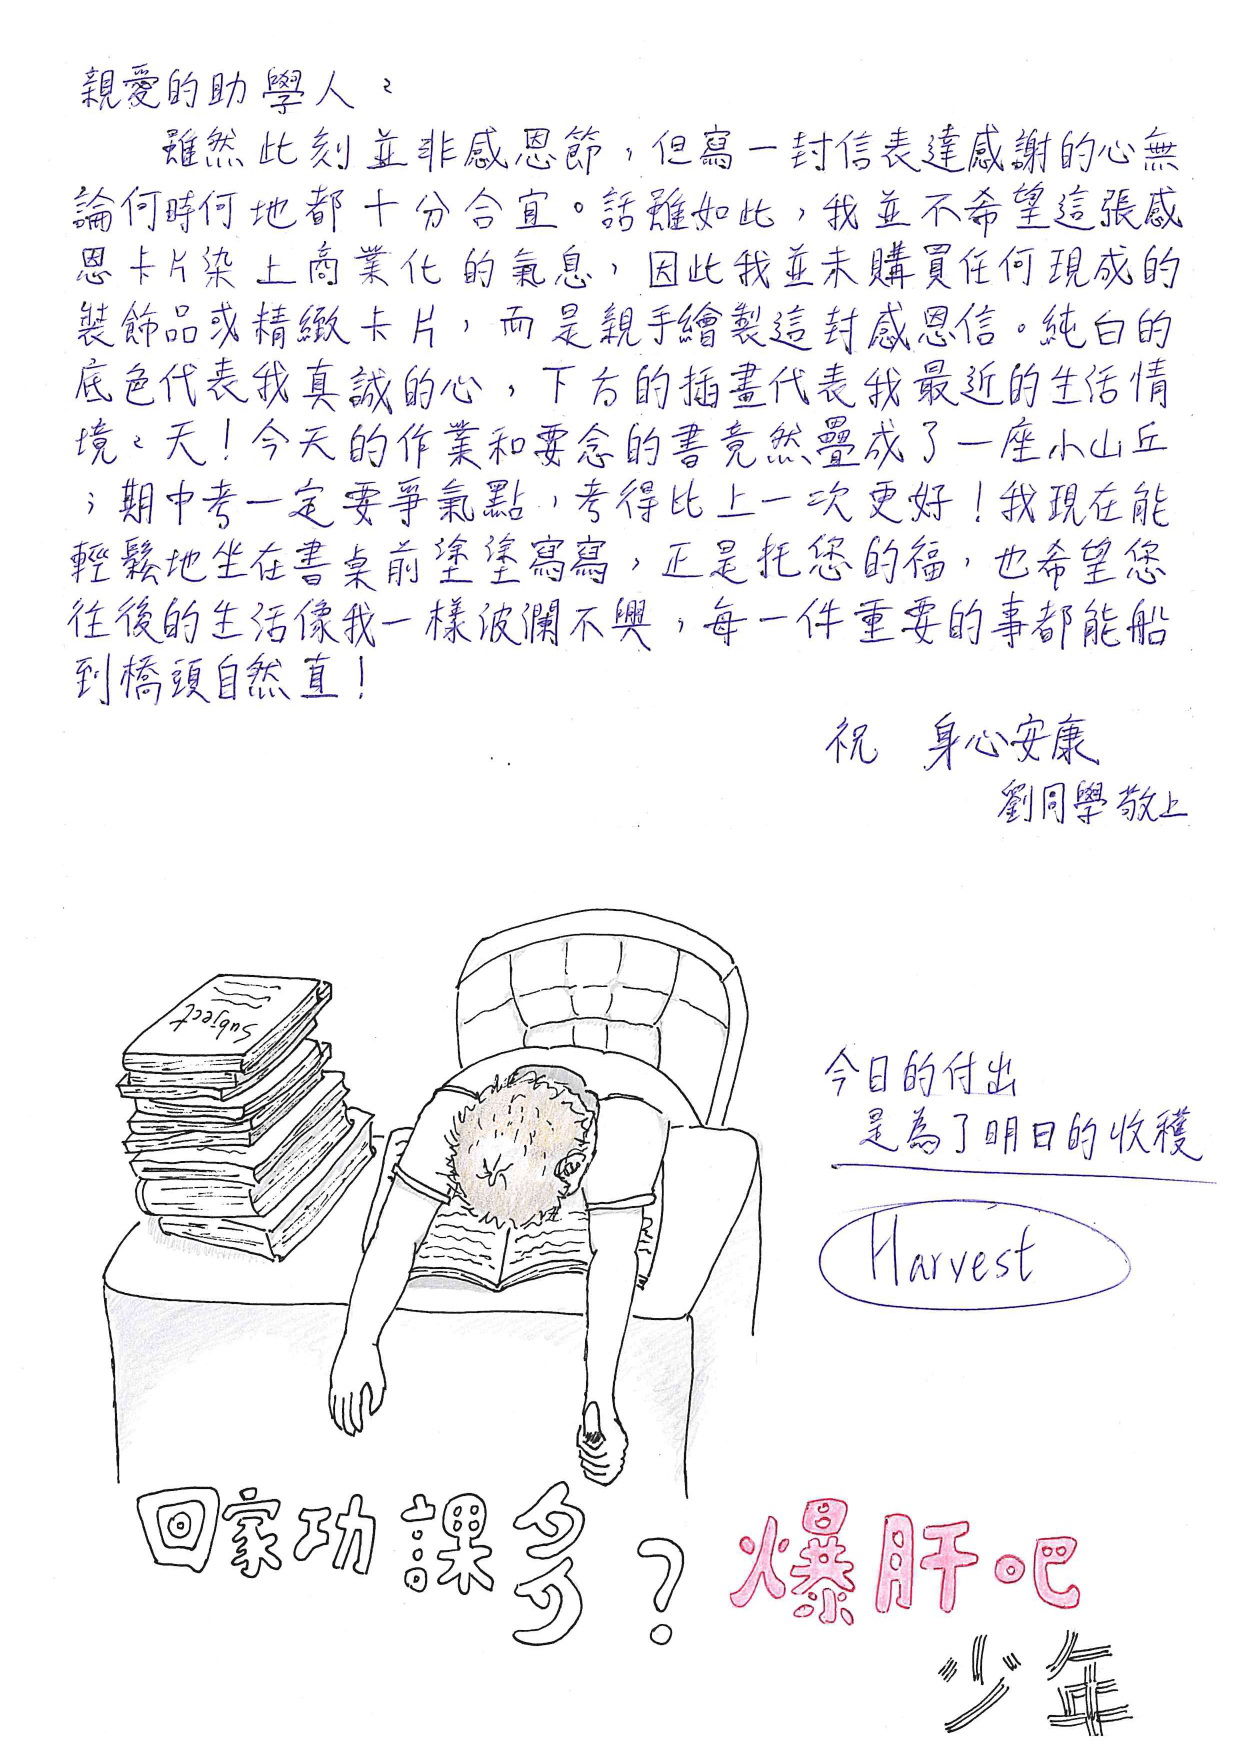 親愛的助學人：
雖然此刻並非感恩節，但寫一封信表達感謝的心無
論何時何地都十分合宜。話雖如此，我並不希望這張感
恩卡片染上商業化的氣息，因此我並未購買任何現成的
裝飾品或精緻卡片，而是親手繪製這封感恩信。純白的
底色代表我真誠的心，下方的插畫代表我最近的生活情
境：天！今天的作業和要念的書竟然疊成了一座小山丘
；期中考一定要爭氣點，考得比上一次更好！我現在能
輕鬆地坐在書桌前塗塗寫寫，正是托您的福，也希望您
往後的生活像我一樣波瀾不興，每一件重要的事都能船
到橋頭自然直！
祝　身心安康
劉同學敬上
Subject
今日的付出
是為了明日的收穫
Harvest
回家功課多？爆肝吧
少年